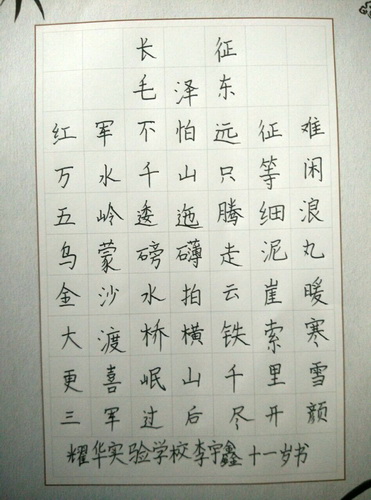 长征
毛泽东
红军不怕远征难
万水千山只等闲
五岭逶迤腾细浪
乌蒙磅礴走泥丸
金沙水拍云崖暖
大渡桥横铁索寒
更喜岷山千里雪
三军过后尽开颜
耀华实验学校李宇鑫十一岁书